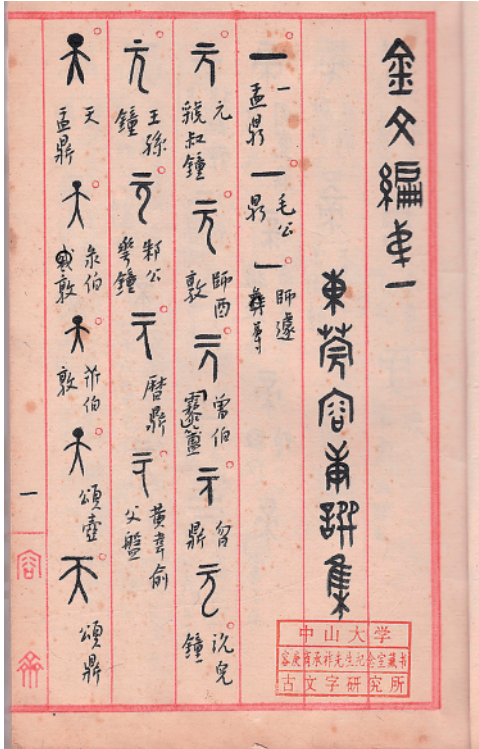 金文編弟一
東莞容庚譔集
一 一 盂鼎 一 毛公鼎 一 師遽彝尊
元 元 虢叔鐘 元 師酉敦 元 曾伯霥簠 元 曶鼎 元 沇兒鐘
元 王孫鐘 元 邾公華鐘 元 曆鼎 元 黃韋俞父盤
天 天 盂鼎 天 彔伯敦 天 伯敦 天 頌壺 天 頌鼎
一
容
中山大学
容庚商承祚先生纪念室藏书
古文字研究所